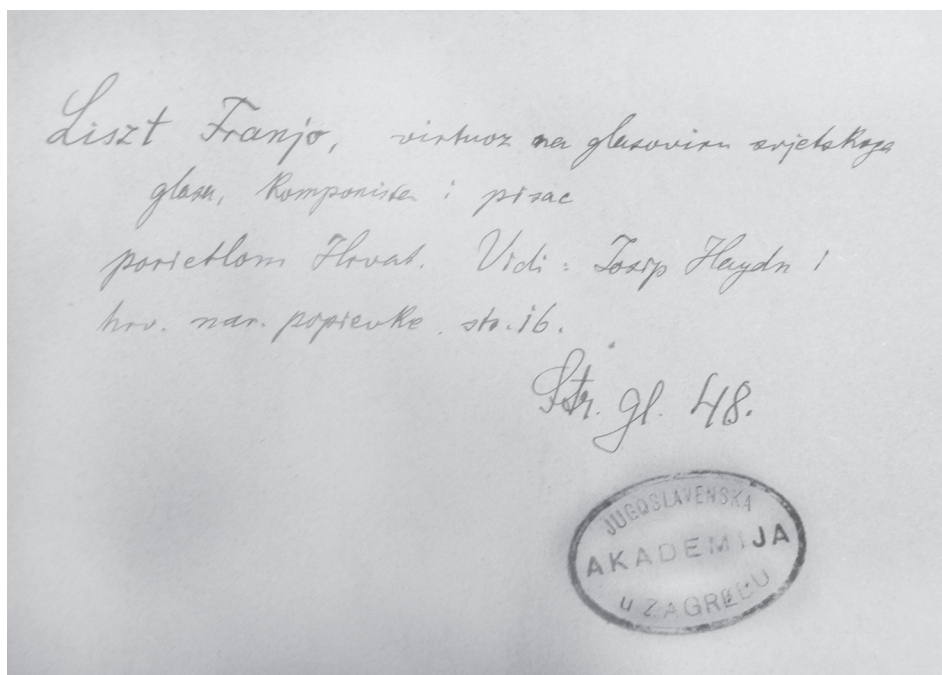 Liszt Franjo, virtuoz na glasoviru svjetskoga
glasa, komponista i pisac
porietlom Hrvat. Vidi: Josip Haydn i
hrv. nar. popievke. str. 16.
Str. gl. 48.
JUGOSLAVENSKA
AKADEMIJA
u ZAGREBU